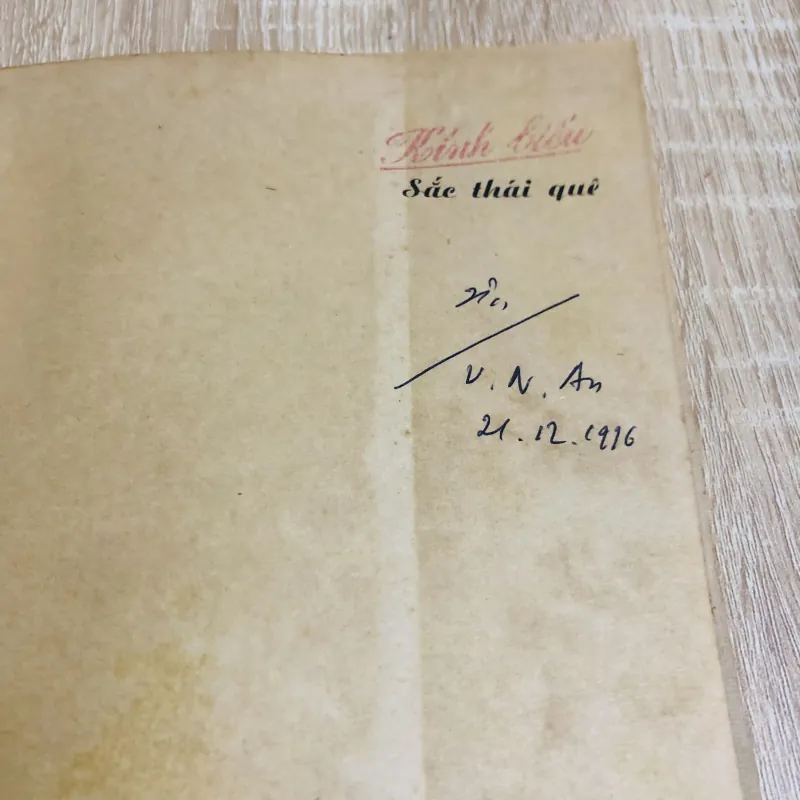 Kính biếu
Sắc thái quê
V. N. An
21.12.1996